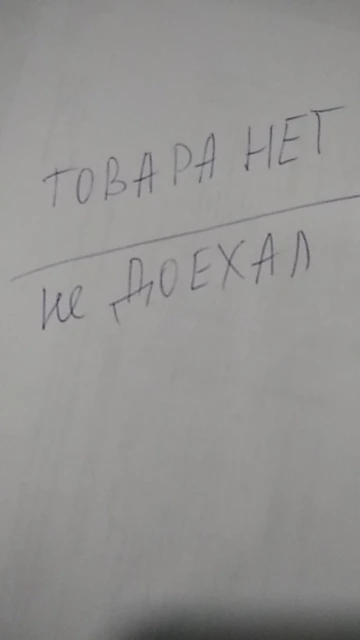 ТОВАРА НЕТ
не ДОЕХАЛ